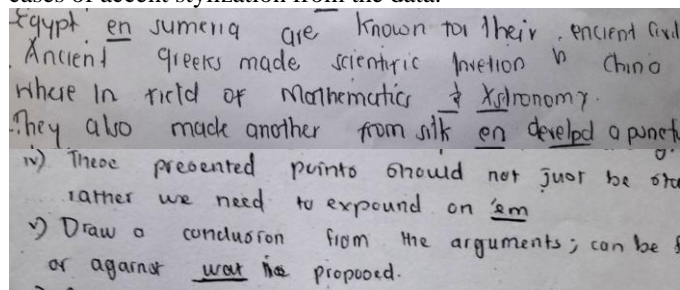 cases of accent stylization from the data.
Egypt en sumeria are known for their encient civil
Ancient greeks made scientific invetion in China
where in field of Mathematics & Astronomy.
They also made another from silk en develpd a
iv) These presented points should not just be
rather we need to expound on 'em
v) Draw a conclusion from the arguments; can be
or against wat is proposed.